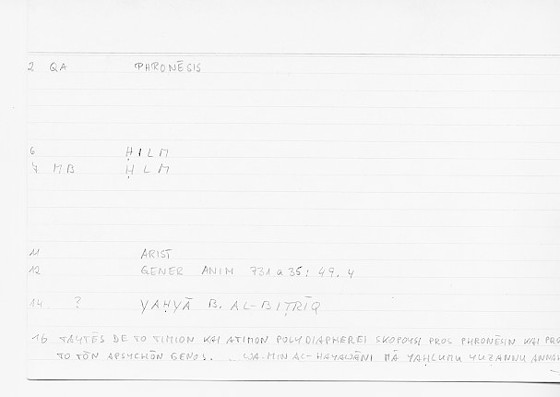 2 QA PHRONĒSIS
6 ḤILM
7 MB ḤLM
11 ARIST
12 GENER ANIM 731 a 35 : 49. 4
14 ? YAḤYĀ B. AL-BIṬRĪQ
16 TAYTĒS DE TO TIMION KAI ATIMON POLY DIAPHEREI SKOPOYSI PROS PHRONĒSIN KAI PROS
TO TŌN APSYCHŌN GENOS. WA-MIN AL-ḤAYAWĀNI MĀ YAḤLUMU YUẒANNU ANNAH